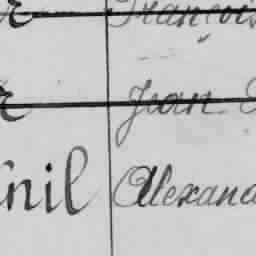 r François
r Jean
nil Alexand